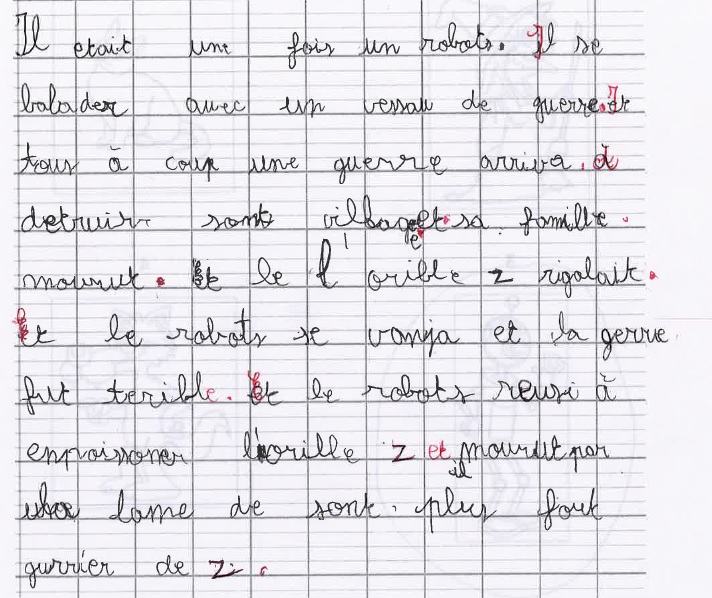 Il etait une fois un robots. Il se
balader avec un vessau de guerre. Et
tous à coup une guerre arriva. à
detruir sont village et sa famille.
mourut. Et le l' orible z rigolait.
Et le robots se vanja et la gerre
fut terible. Et le robots reusi à
enpoissoner l'orille z et il mourut par
lame de sont. plus fort
gurrier de z.